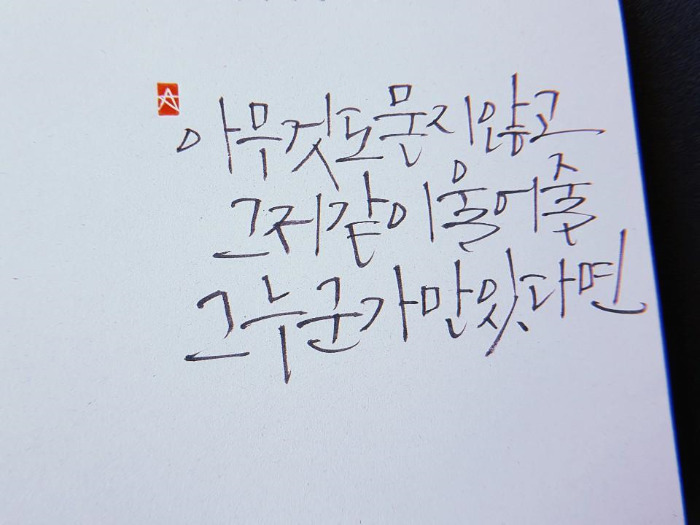 아무것도 묻지 않고
그저 같이 울어 줄
그 누군가만 있다면